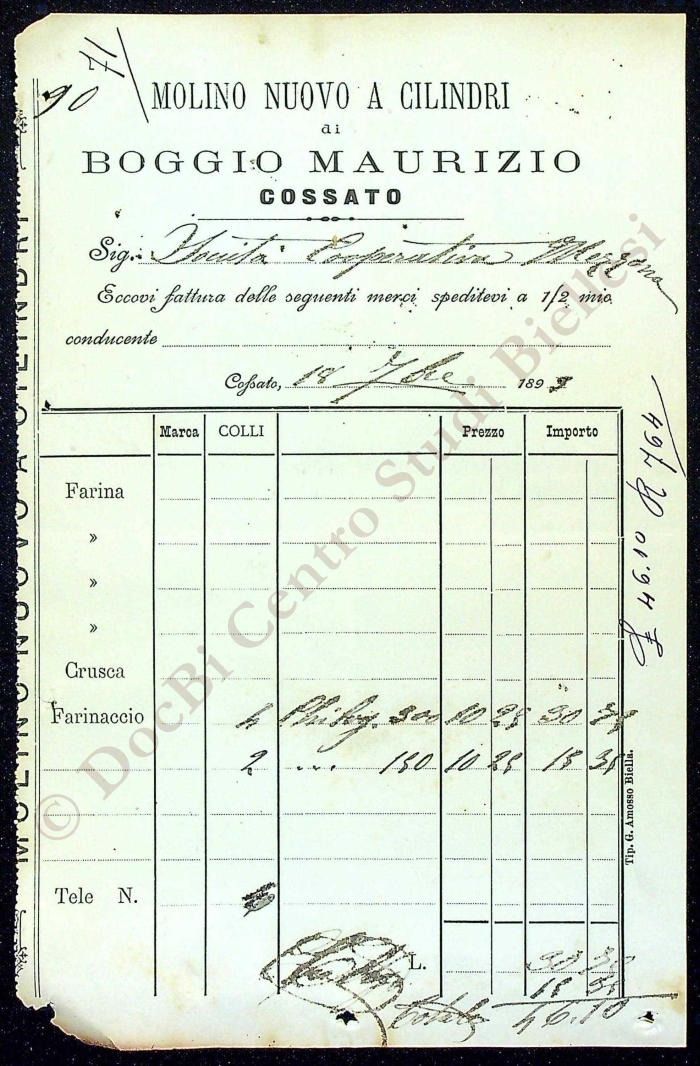 90
71
MOLINO NUOVO A CILINDRI
di
BOGGIO MAURIZIO
COSSATO
Sig. Società Cooperativa Mezzana
Eccovi fattura delle seguenti merci speditevi a 1/2 mio
conducente
Cossato, 18 7bre 189
Marca COLLI Prezzo Importo
Farina
»
»
»
Crusca
Farinaccio 4 300 10 25 30
2 150 10 25 15 35
Tele N.
L. 30
15 35
Totale 46.10
£ 46.10 R 764
Tip. G. Amosso Biella.
MOLINO NUOVO A CILINDRI
© DocBi Centro Studi Biellesi